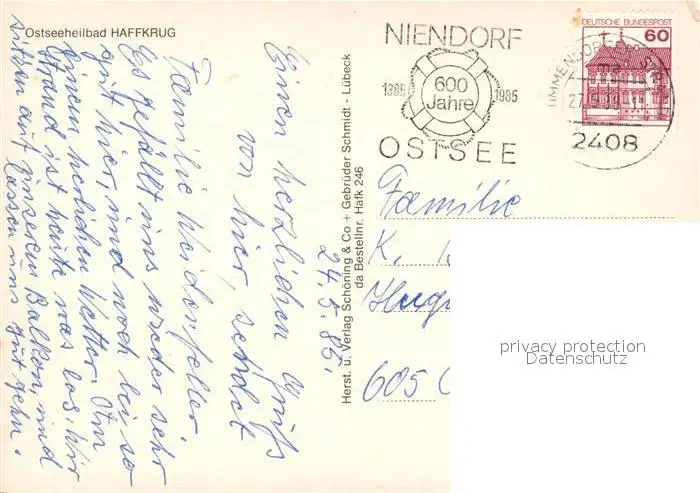 Ostseeheilbad HAFFKRUG
24.5.85.
Einen herzlichen Gruß
von hier, sendet
Familie Weidenfeller.
Es gefällt uns wieder sehr
gut hier, und noch bei so
einem herlichen Wetter. Am
Strand ist heute was los. Wir
sitzen auf unserem Balkon, und
lassen uns gut gehn.
Herst. u. Verlag Schöning & Co + Gebrüder Schmidt - Lübeck
da Bestellnr. Hafk 246
NIENDORF
1385 600 Jahre 1985
OSTSEE
DEUTSCHE BUNDESPOST
60
2408
Familie
K.
Hug
605
privacy protection
Datenschutz